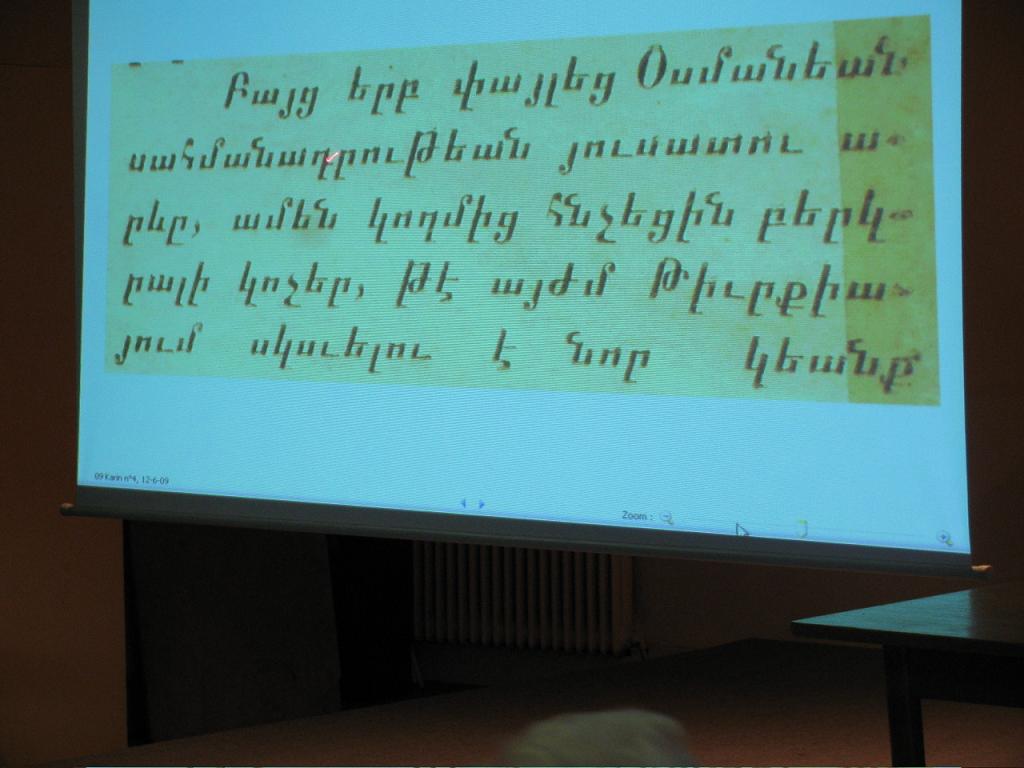 Բայց երբ փայլեց Օսմանեան
սահմանադրութեան յուսատու ա-
րևը, ամեն կողմից հնչեցին բերկ-
րալի կոչեր, թէ այժմ Թիւրքիա-
յում սկսւելու է նոր կեանք
09 Karin n°4, 12-6-09
Zoom :